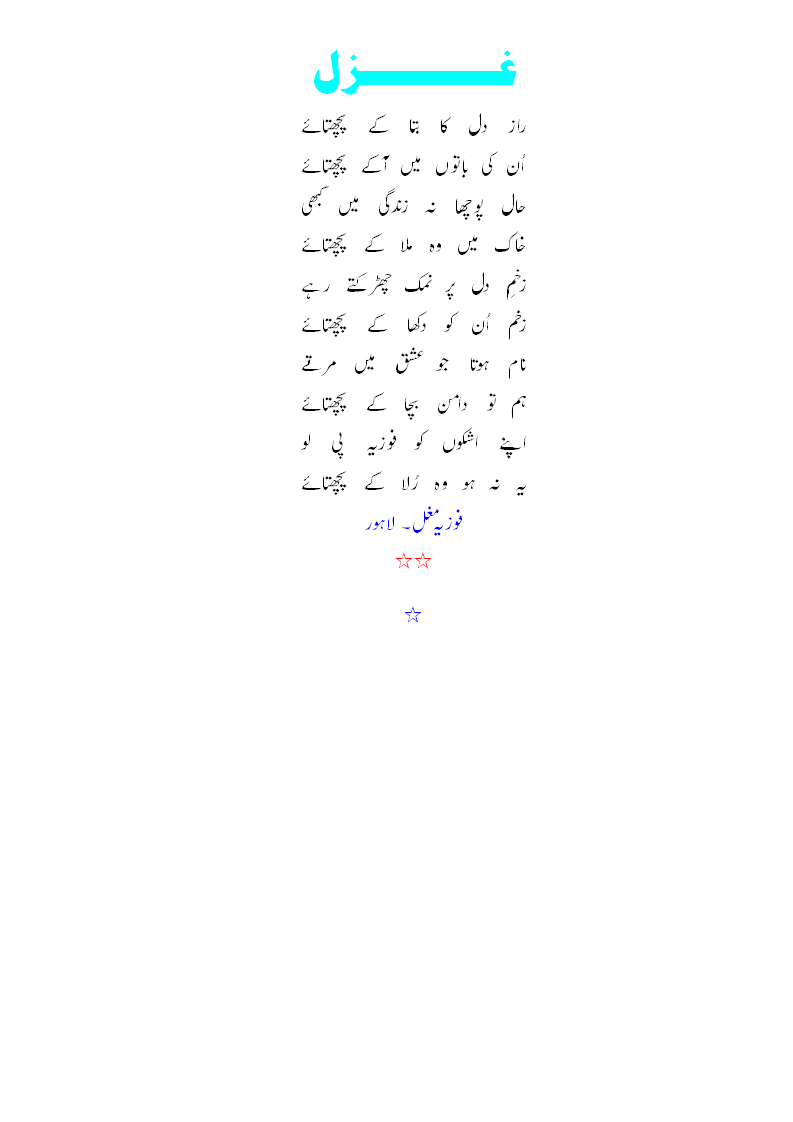 غــــــــــزل
راز دل کا بتا کے پچھتائے
اُن کی باتوں میں آکے پچھتائے
حال پوچھا نہ زندگی میں کبھی
خاک میں وہ ملا کے پچھتائے
زخمِ دل پر نمک چھڑکتے رہے
زخم اُن کو دکھا کے پچھتائے
نام ہوتا جو عشق میں مرتے
ہم تو دامن بچا کے پچھتائے
اپنے اشکوں کو فوزیہ پی لو
یہ نہ ہو وہ رُلا کے پچھتائے
فوزیہ مغل۔ لاہور
☆☆
☆